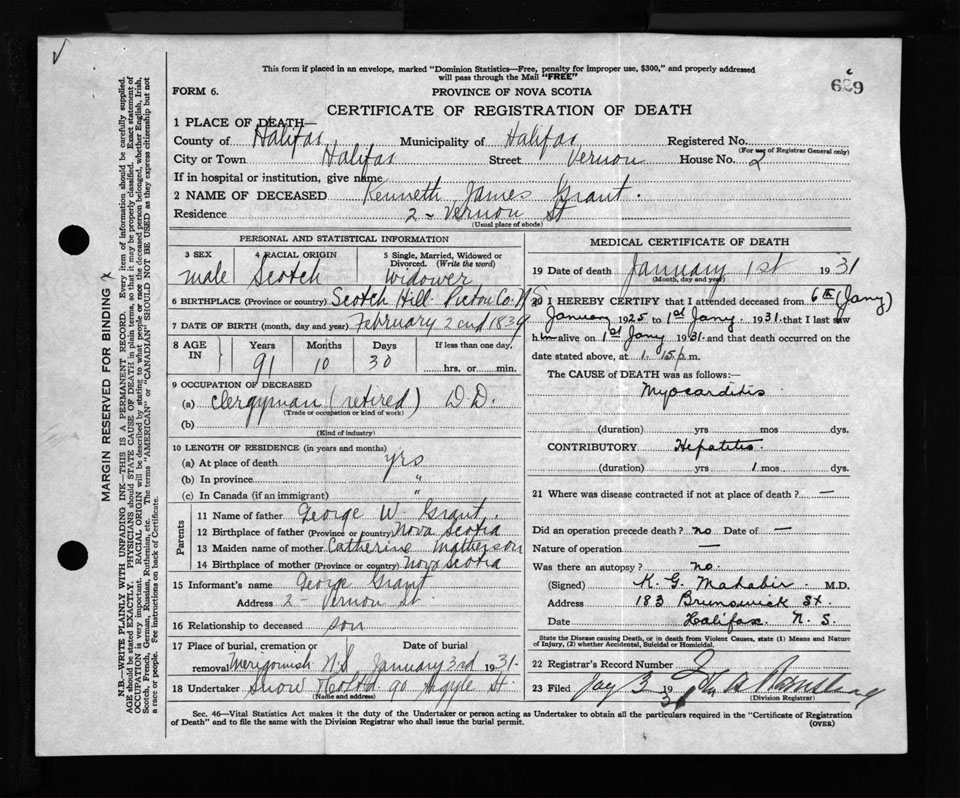 ✓
This form if placed in an envelope, marked "Dominion Statistics—Free, penalty for improper use, $300," and properly addressed
will pass through the Mail "FREE"
FORM 6.
PROVINCE OF NOVA SCOTIA
CERTIFICATE OF REGISTRATION OF DEATH
1 PLACE OF DEATH—
County of Halifax Municipality of Halifax Registered No.
(For use of Registrar General only)
City or Town Halifax Street Vernon House No. 2
If in hospital or institution, give name
2 NAME OF DECEASED Kenneth James Grant.
Residence 2 - Vernon St
(Usual place of abode)
PERSONAL AND STATISTICAL INFORMATION
3 SEX 4 RACIAL ORIGIN 5 Single, Married, Widowed or
Divorced. (Write the word)
male Scotch Widower
6 BIRTHPLACE (Province or country) Scotch Hill Pictou Co. N.S
7 DATE OF BIRTH (month, day and year) February 2nd 1839
8 AGE IN Years Months Days If less than one day,
91 10 30 hrs. or min.
9 OCCUPATION OF DECEASED
(a) Clergyman (retired) D.D.
(Trade or occupation or kind of work)
(b)
(Kind of industry)
10 LENGTH OF RESIDENCE (in years and months)
(a) At place of death yrs
(b) In province "
(c) In Canada (if an immigrant) "
Parents
11 Name of father George W. Grant.
12 Birthplace of father (Province or country) Nova Scotia
13 Maiden name of mother Catherine Matherson
14 Birthplace of mother (Province or country) Nova Scotia
15 Informant's name George Grant
Address 2 - Vernon St.
16 Relationship to deceased son
17 Place of burial, cremation or Date of burial
removal Merigomish N.S. January 3rd 1931.
18 Undertaker Snow & Co Ltd. 90 Argyle St.
(Name and address)
MEDICAL CERTIFICATE OF DEATH
19 Date of death January 1st 1931
(Month, day and year)
20 I HEREBY CERTIFY that I attended deceased from 6th (Jany)
January 1925 to 1st Jany. 1931 that I last saw
him alive on 1st Jany 1931 and that death occurred on the
date stated above, at 1.15 p.m.
The CAUSE of DEATH was as follows:—
Myocarditis
(duration) yrs mos dys.
CONTRIBUTORY Hepatitis
(duration) yrs 1 mos dys.
21 Where was disease contracted if not at place of death? —
Did an operation precede death? no Date of —
Nature of operation —
Was there an autopsy? no.
(Signed) K. G. Mahabir M.D.
Address 183 Brunswick St
Date Halifax N. S.
State the Disease causing Death, or in death from Violent Causes, state (1) Means and Nature
of Injury, (2) whether Accidental, Suicidal or Homicidal.
22 Registrar's Record Number 2
23 Filed Jay 3 1931
(Division Registrar)
Sec. 46—Vital Statistics Act makes it the duty of the Undertaker or person acting as Undertaker to obtain all the particulars required in the "Certificate of Registration
of Death" and to file the same with the Division Registrar who shall issue the burial permit.
(OVER)
MARGIN RESERVED FOR BINDING
N.B.—WRITE PLAINLY WITH UNFADING INK—THIS IS A PERMANENT RECORD. Every item of information should be carefully supplied.
AGE should be stated EXACTLY. PHYSICIANS should STATE CAUSE OF DEATH in plain terms, so that it may be properly classified. Exact statement of
OCCUPATION is very important. RACIAL ORIGIN will be described by stating to what people or race the deceased person belonged, whether English, Irish,
Scotch, French, German, Russian, Ruthenian, etc. The terms "AMERICAN" or "CANADIAN" SHOULD NOT BE USED as they express citizenship but not
a race or people. See instructions on back of Certificate.